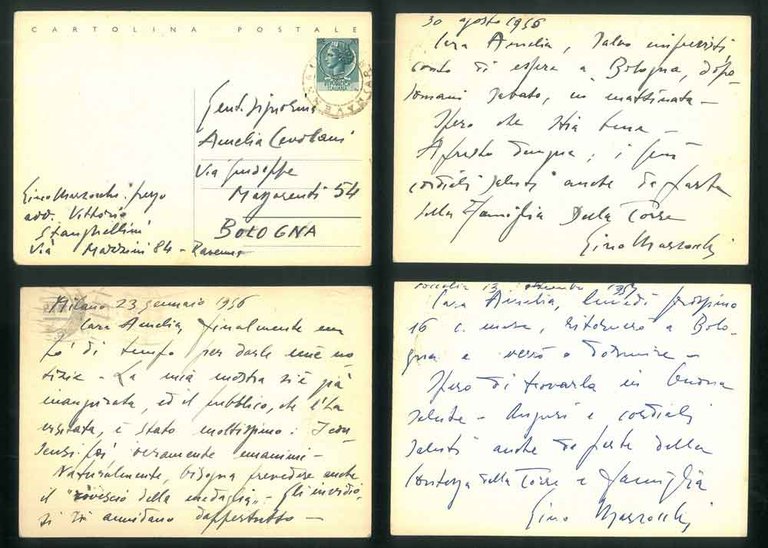 CARTOLINA POSTALE
Gent. Signorina
Amelia Cevolani
Via Giuseppe
Mazzarenti 54
BOLOGNA
Gino Marzocchi presso
avv. Vittorio
Stanghellini
Via Mazzini 84 - Ravenna
30 agosto 1956
Cara Amelia, salvo imprevisti,
conto di essere a Bologna, dopo
domani sabato, in mattinata -
Spero che stia bene -
A presto dunque; i più
cordiali saluti anche da parte
della Famiglia Della Torre
Gino Marzocchi
Milano 23 gennaio 1956
Cara Amelia, finalmente un
po' di tempo per darle mie no
tizie - La mia mostra si è già
inaugurata, ed il pubblico, che l'ha
visitata, è stato moltissimo: I con
sensi poi veramente unanimi -
Naturalmente, bisogna prevedere anche
il "rovescio della medaglia" - Gli invidio
si si annidano dappertutto -
13
Cara Amelia, lunedì prossimo
16 c. mese, ritornerò a Bolo-
gna e verrò a dormire -
Spero di trovarla in buona
salute - Auguri e cordiali
saluti anche da parte della
Contessa della Torre e famiglia
Gino Marzocchi